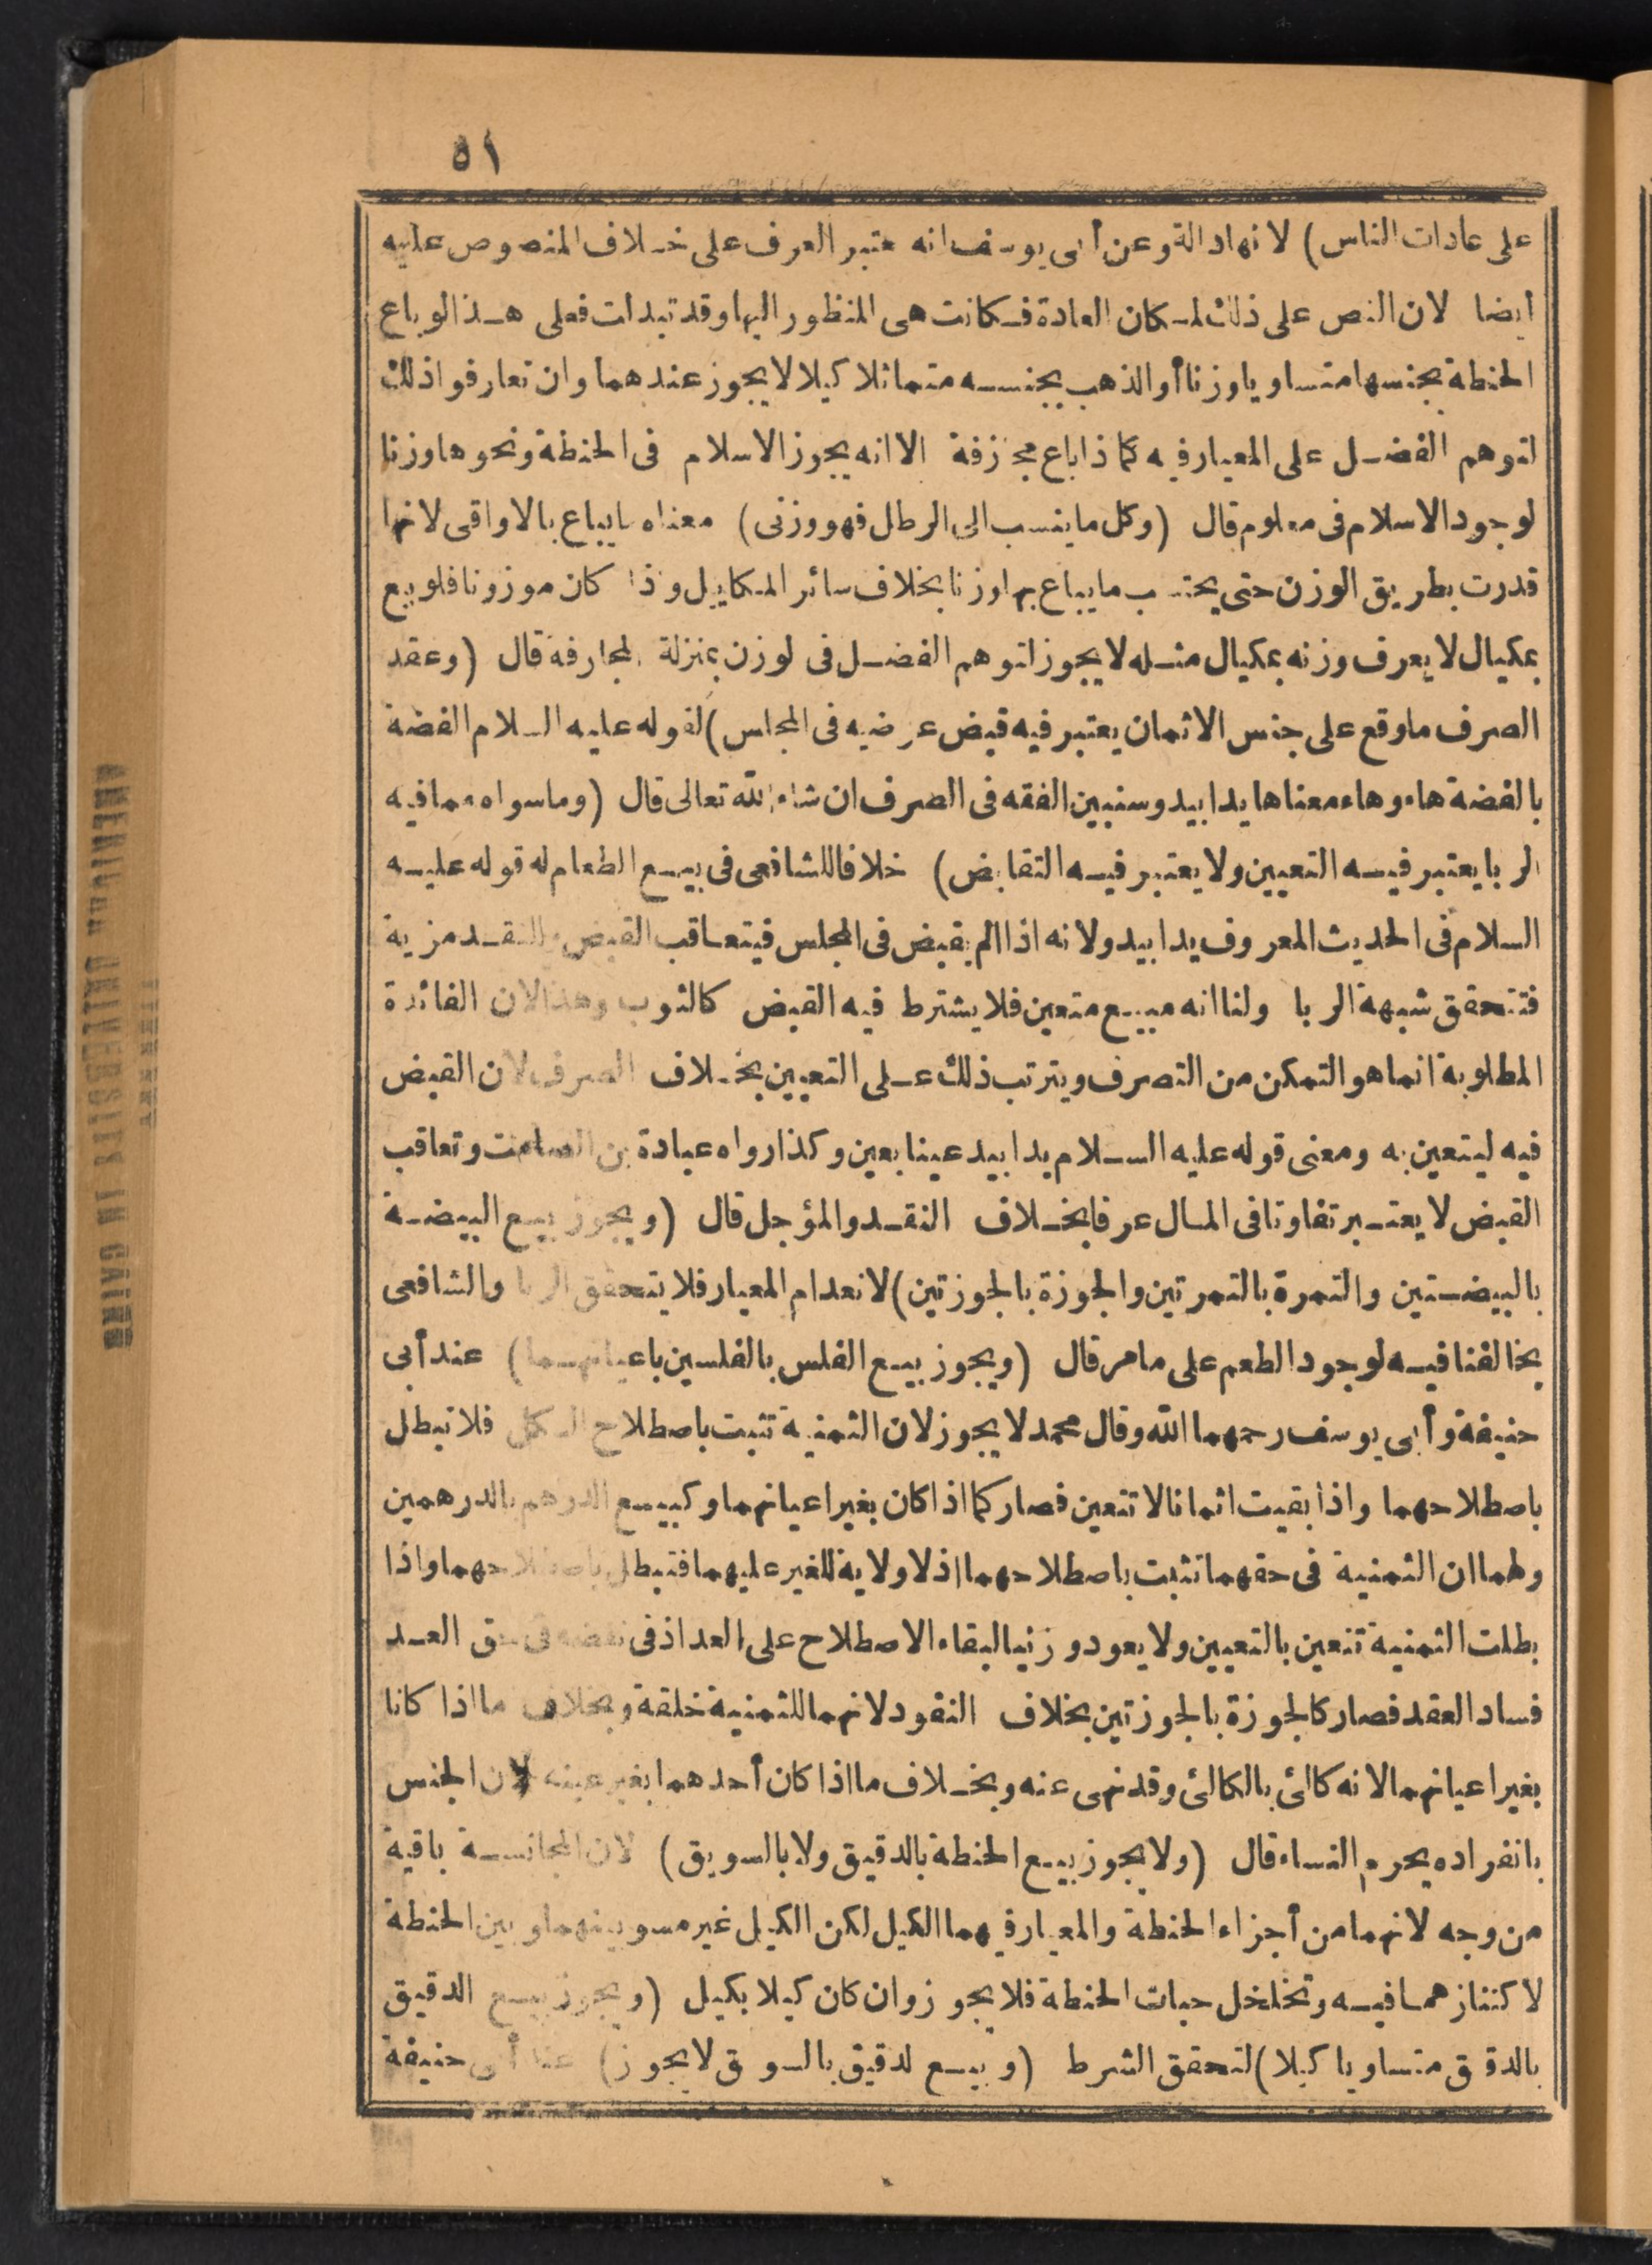 ٥١
على عادات الناس) لانها دالة وعن أبى يوسف انه يعتبر العرف على خلاف المنصوص عليه
أيضا لان النص على ذلك لمكان العادة فكانت هى المنظور اليها وقد تبدلت فعلى هذا لو باع
الحنطة بجنسها متساويا وزنا أو الذهب بجنسه متماثلا كيلا لا يجوز عندهما وان تعارفوا ذلك
لتوهم الفضل على المعيار فيه كما ذا باع مجازفة الا انه يجوز الاسلام فى الحنطة ونحوها وزنا
لوجود الاسلام فى معلوم قال (وكل ما ينسب الى الرطال فهو وزنى) معناه ما يباع بالاواقى لانها
قدرت بطريق الوزن حتى يحتسب ما يباع بها وزنا بخلاف سائر المكاييل واذا كان موزونا فلو بيع
بمكيال لا يعرف وزنه بمكيال مثله لا يجوز لتوهم الفضل فى الوزن بمنزلة المجازفة قال (وعقد
الصرف ما وقع على جنس الاثمان يعتبر فيه قبض عوضيه فى المجلس) لقوله عليه السلام الفضة
بالفضة هاء وهاء معناها يدا بيد وسنبين الفقه فى الصرف ان شاء الله تعالى قال (وما سواه مما فيه
الربا يعتبر فيه التعيين ولا يعتبر فيه التقابض) خلافا للشافعى فى بيع الطعام له قوله عليه
السلام فى الحديث المعروف يدا بيد ولانه اذا لم يقبض فى المجلس فيتعاقب القبض وللنقد مزية
فتتحقق شبهة الربا ولنا انه مبيع متعين فلا يشترط فيه القبض كالثوب وهذا لان الفائدة
المطلوبة انما هو التمكن من التصرف ويترتب ذلك على التعيين بخلاف الصرف لان القبض
فيه ليتعين به ومعنى قوله عليه السلام يدا بيد عينا بعين وكذا رواه عبادة بن الصامت وتعاقب
القبض لا يعتبر تفاوتا فى المال عرفا بخلاف النقد والمؤجل قال (ويجوز بيع البيضة
بالبيضتين والتمرة بالتمرتين والجوزة بالجوزتين) لانعدام المعيار فلا يتحقق الربا والشافعى
يخالفنا فيه لوجود الطعم على ما مر قال (ويجوز بيع الفلس بالفلسين باعيانهما) عند أبى
حنيفة وأبى يوسف رحمهما الله وقال محمد لا يجوز لان الثمنية تثبت باصطلاح الكل فلا تبطل
باصطلاحهما واذا بقيت اثمانا لا تتعين فصار كما اذا كان بغير اعيانهما وكبيع الدرهم بالدرهمين
ولهما ان الثمنية فى حقهما تثبت باصطلاحهما اذ لا ولاية للغير عليهما فتبطل باصطلاحهما واذا
بطلت الثمنية تتعين بالتعيين ولا يعود وزنيا لبقاء الاصطلاح على العد اذ فى نقضه فى حق العد
فساد العقد فصار كالجوزة بالجوزتين بخلاف النقود لانهما للثمنية خلقة وبخلاف ما اذا كانا
بغير اعيانهما لانه كالئ بالكالئ وقد نهى عنه وبخلاف ما اذا كان أحدهما بغير عينه لان الجنس
بانفراده يحرم النساء قال (ولا يجوز بيع الحنطة بالدقيق ولا بالسويق) لان المجانسة باقية
من وجه لانهما من أجزاء الحنطة والمعيار فيهما الكيل لكن الكيل غير مسو بينهما وبين الحنطة
لاكتنازهما فيه وتخلخل حبات الحنطة فلا يجوز وان كان كيلا بكيل (ويجوز بيع الدقيق
بالدقيق متساويا كيلا) لتحقق الشرط (وبيع الدقيق بالسويق لا يجوز) عند أبى حنيفة
AMERICAN UNIVERSITY IN CAIRO
LIBRARY